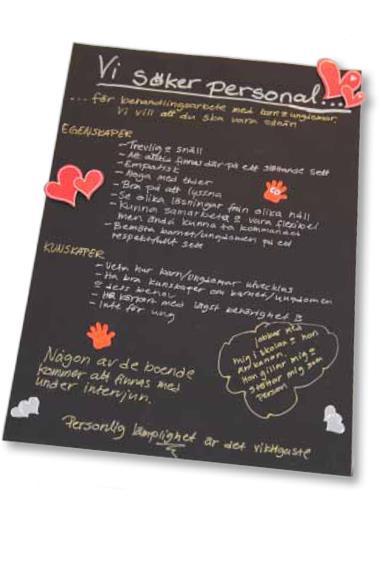 Vi söker personal...
...för behandlingsarbete med barn & ungdomar.
Vi vill att du ska vara sådan
EGENSKAPER
- Trevlig & snäll
- Att alltid finnas där på ett stöttande sätt
- Empatisk
- Noga med tider
- Bra på att lyssna
- Se olika lösningar från olika håll
- Kunna samarbeta & vara flexibel
men ändå kunna ta kommandot
- Bemöta barnet/ungdomen på ett
respektfullt sätt
KUNSKAPER
- Veta hur barn/ungdomar utvecklas
- Ha bra kunskaper om barnet/ungdomen
& dess behov
- Ha körkort med lägst behörighet B
- Inte för ung
Någon av de boende
kommer att finnas med
under intervjun.
jobbar med
mig i skolan & hon
är
Hon gillar mig &
stöttar mig som
person
Personlig lämplighet är det viktigaste